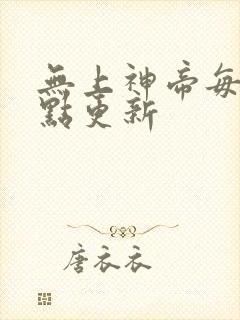 無上神帝每
點更新
唐衣衣